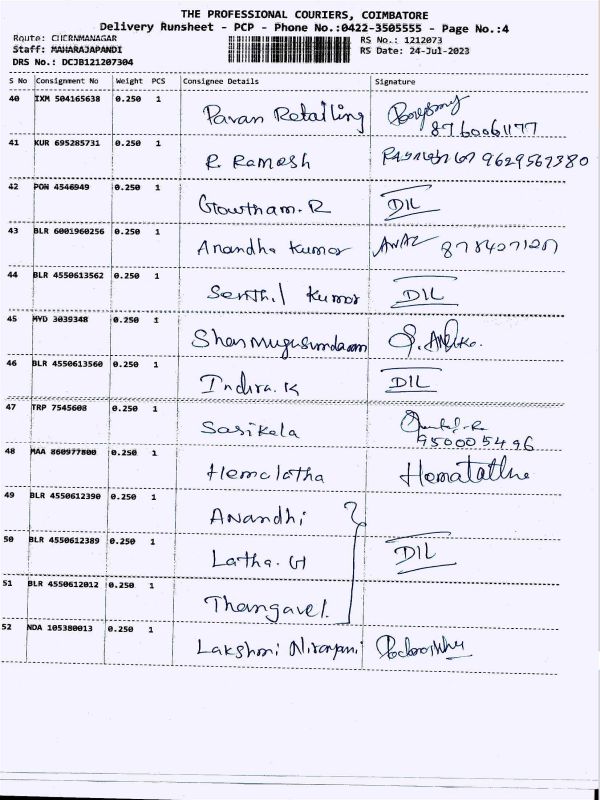 THE PROFESSIONAL COURIERS, COIMBATORE
Delivery Runsheet - PCP - Phone No.:0422-3505555 - Page No.:4
Route: CHERNMANAGAR RS No.: 1212073
Staff: MAHARAJAPANDI RS Date: 24-Jul-2023
DRS No.: DCJB121207304
S No Consignment No Weight PCS Consignee Details Signature
40 IXM 504165638 0.250 1 Pavan Retailing
8760061177
41 KUR 695285731 0.250 1 R. Ramesh 9629567380
42 PON 4546949 0.250 1 Gowtham. R DIL
43 BLR 6001960256 0.250 1 Anandha Kumar
44 BLR 4550613562 0.250 1 Senthil Kumar DIL
45 MYD 3039348 0.250 1 Shanmugusundaram
46 BLR 4550613560 0.250 1 Indira. K DIL
47 TRP 7545608 0.250 1 Sasikala
950005496
48 MAA 860977800 0.250 1 Hemalatha Hematatha
49 BLR 4550612390 0.250 1 Anandhi
50 BLR 4550612389 0.250 1 Latha. G DIL
51 BLR 4550612012 0.250 1 Thangavel.
52 NDA 105380013 0.250 1 Lakshmi Niranjani